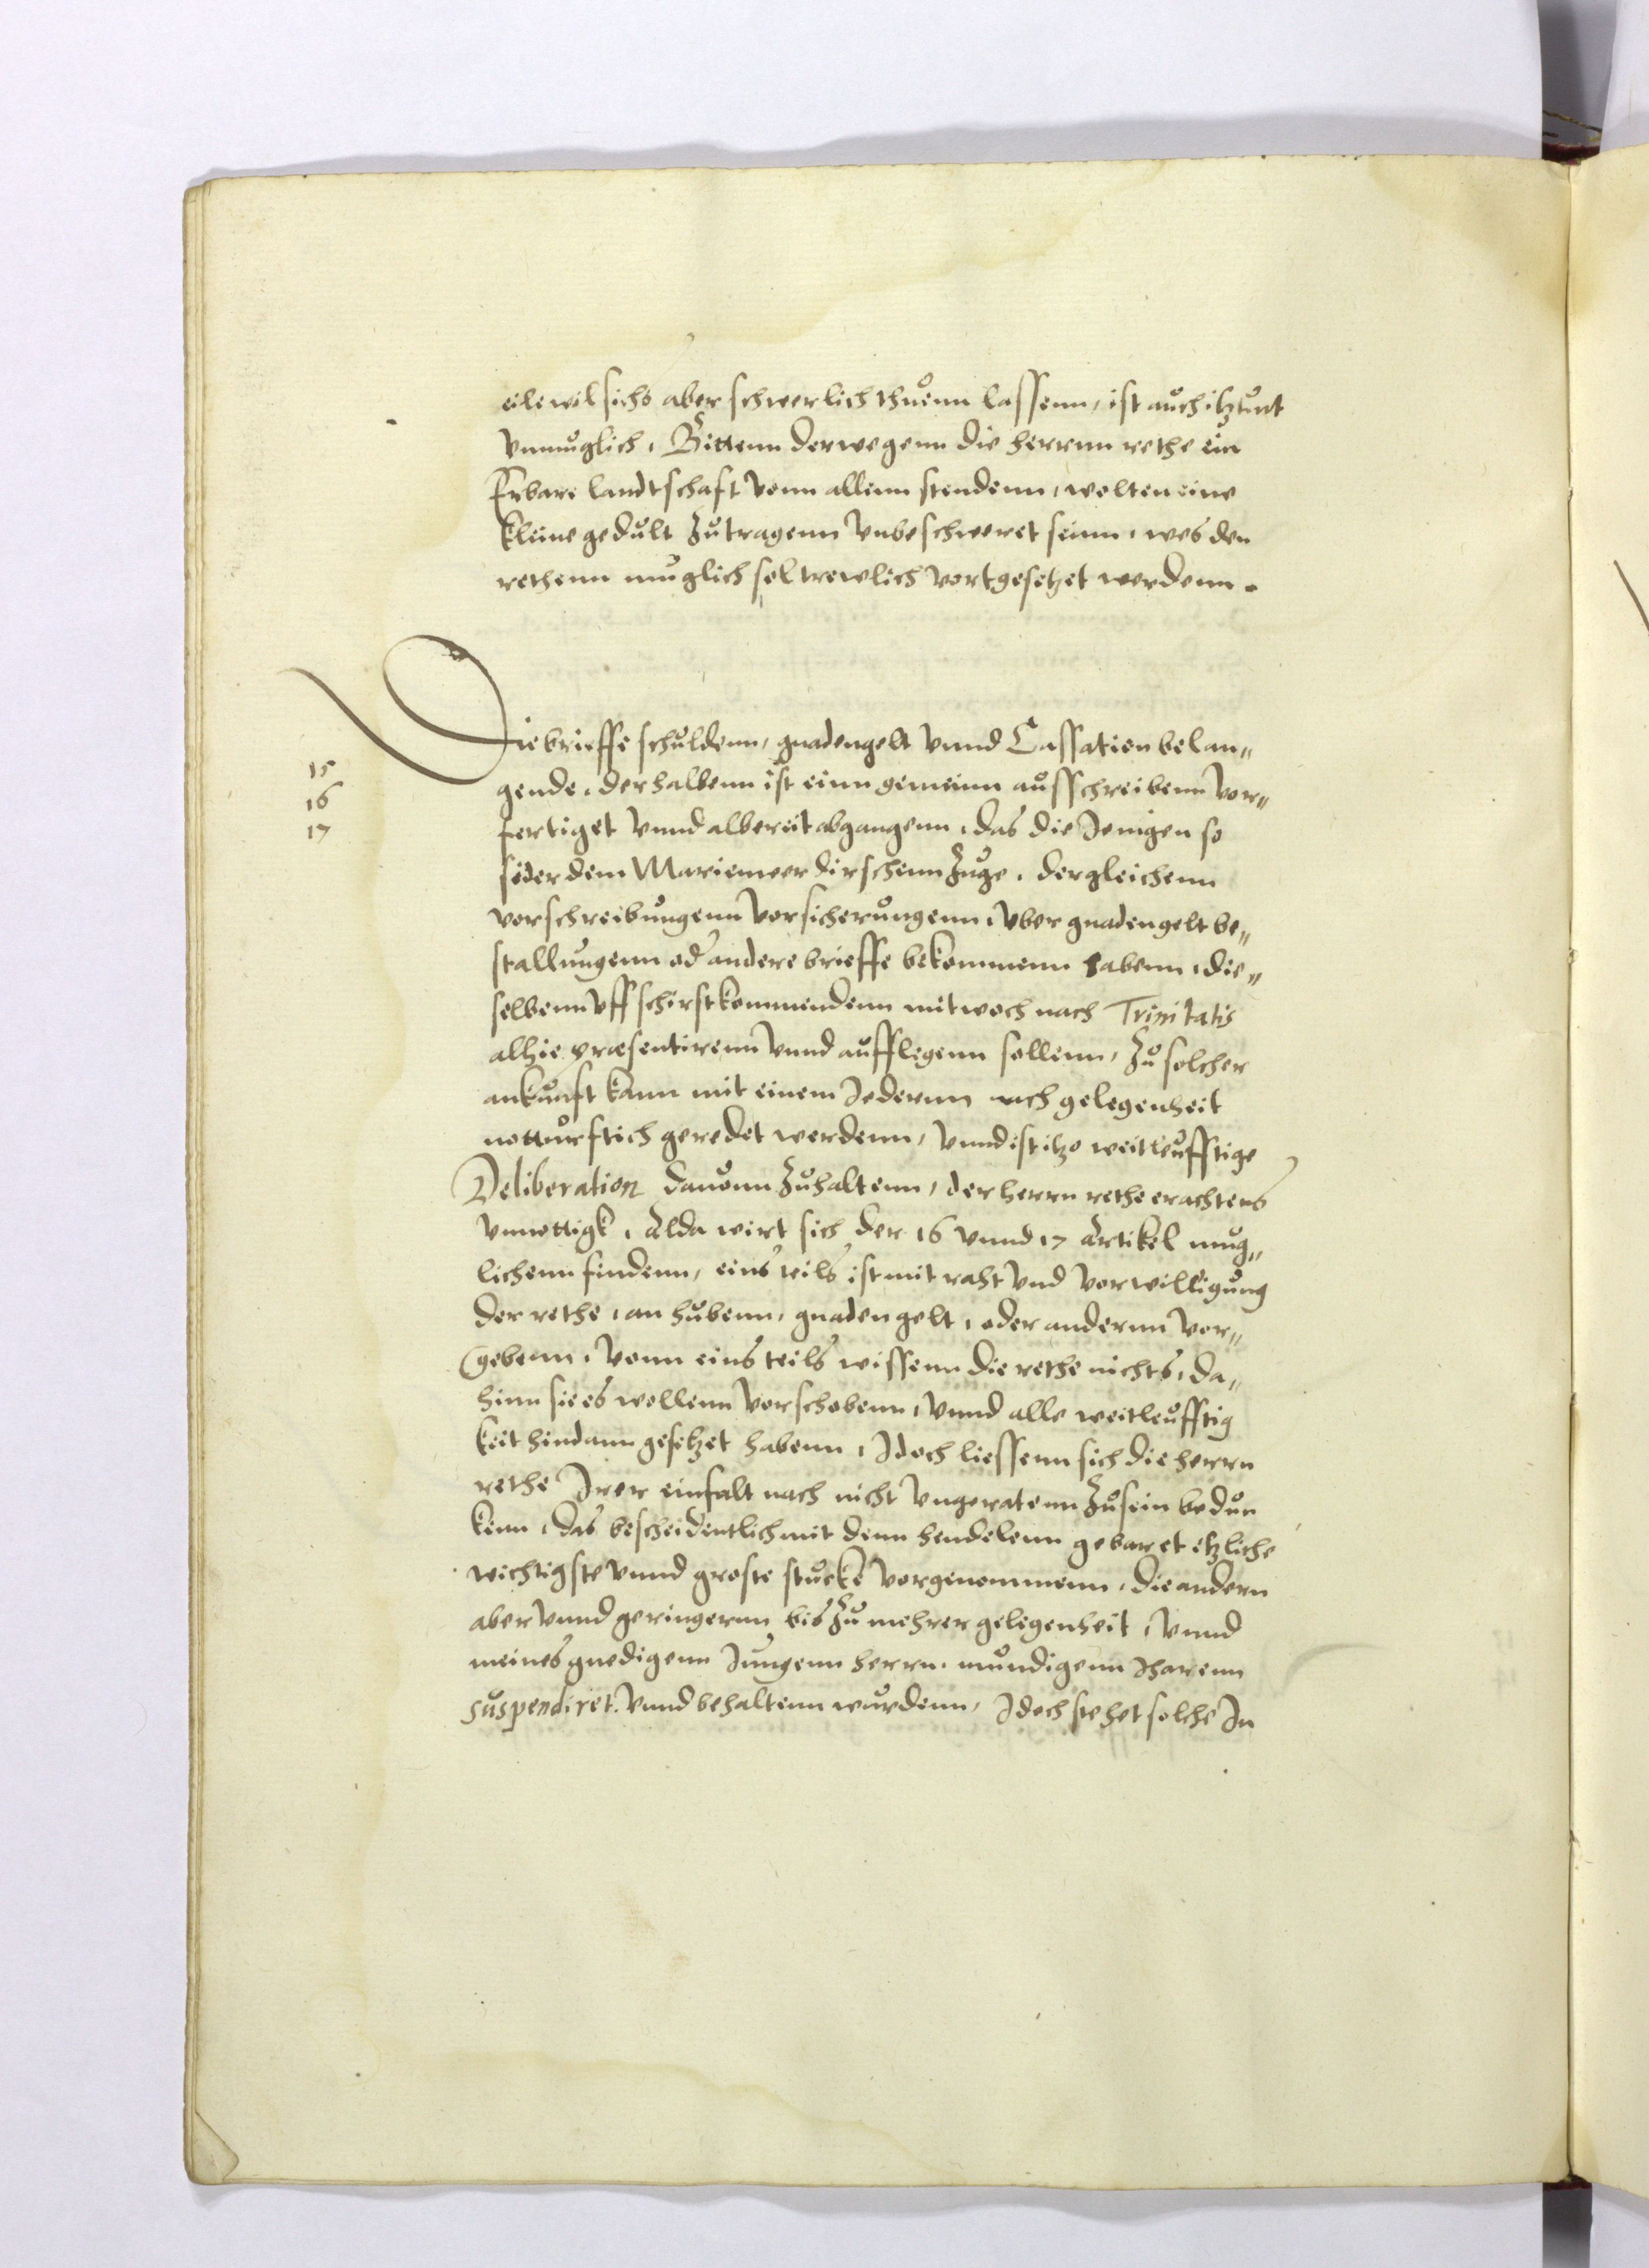 eile wil sichs aber schwerlich thuenn lassenn, ist auch itzunt
vnmuglich, Bittenn derwegenn die herrnn rethe ein
Erbare landtschaft vonn allenn stendenn, wolten eine
kleine gedult zu tragenn vnbeschweret seinn, wes den
rethenn muglich sol trewlich vortgesetzet werdenn.
Die brieffe schuldenn, gnadengelt vnnd Cassation belan„
15
gende, derhalbenn ist einn gemeinn aussschreibenn vor„
16
fertiget vnnd albereit abgangenn, das die Jenigen so
17
sider dem Mariemwerdirschenn Zuge, dergleichenn
vorschreibungenn vorsicherungenn, vber gnadengelt be„
stallungenn od andere brieffe bekommenn habenn, die„
selbenn vff schirstkommendenn mitwoch nach Trinitatis
alhie præsentirenn vnnd aufflegenn sollenn, Zu solcher
ankunft kann mit einem Jedernn nach gelegenheit
notturftich geredet werdenn, vnnd ist itzo weitleufftige
Deliberation dauonn zuhaltenn, der herrn rethe erachtens
vnnottigk, Alda wirt sich der 16 vnnd 17 Artikel mug„
lichenn findenn, eins teils ist mit raht vnd vorwilligung
der rethe, an hubenn, gnadengelt, oder andernn vor„
gebenn, vonn eins teils wissenn die rethe nichts, da„
hinn sie es wollenn vorschobenn, vnnd alle weitleufftig
keit hindann gesetzet habenn, Jdoch liessenn sich die herrn
rethe Jrer einfalt nach nicht vngeratenn zusein bedun
kenn, das bescheidentlich mit denn hendelenn gebaret etzliche
wichtigste vnnd groste stucke vorgenommenn, die andern
aber vnnd geringernn bis zu mehrer gelegenheit, vnnd
meines gnedigenn Jungenn herrn, mundigenn Jharenn
suspendiret vnnd behaltenn wurdenn, Jdoch stehet solche Jn